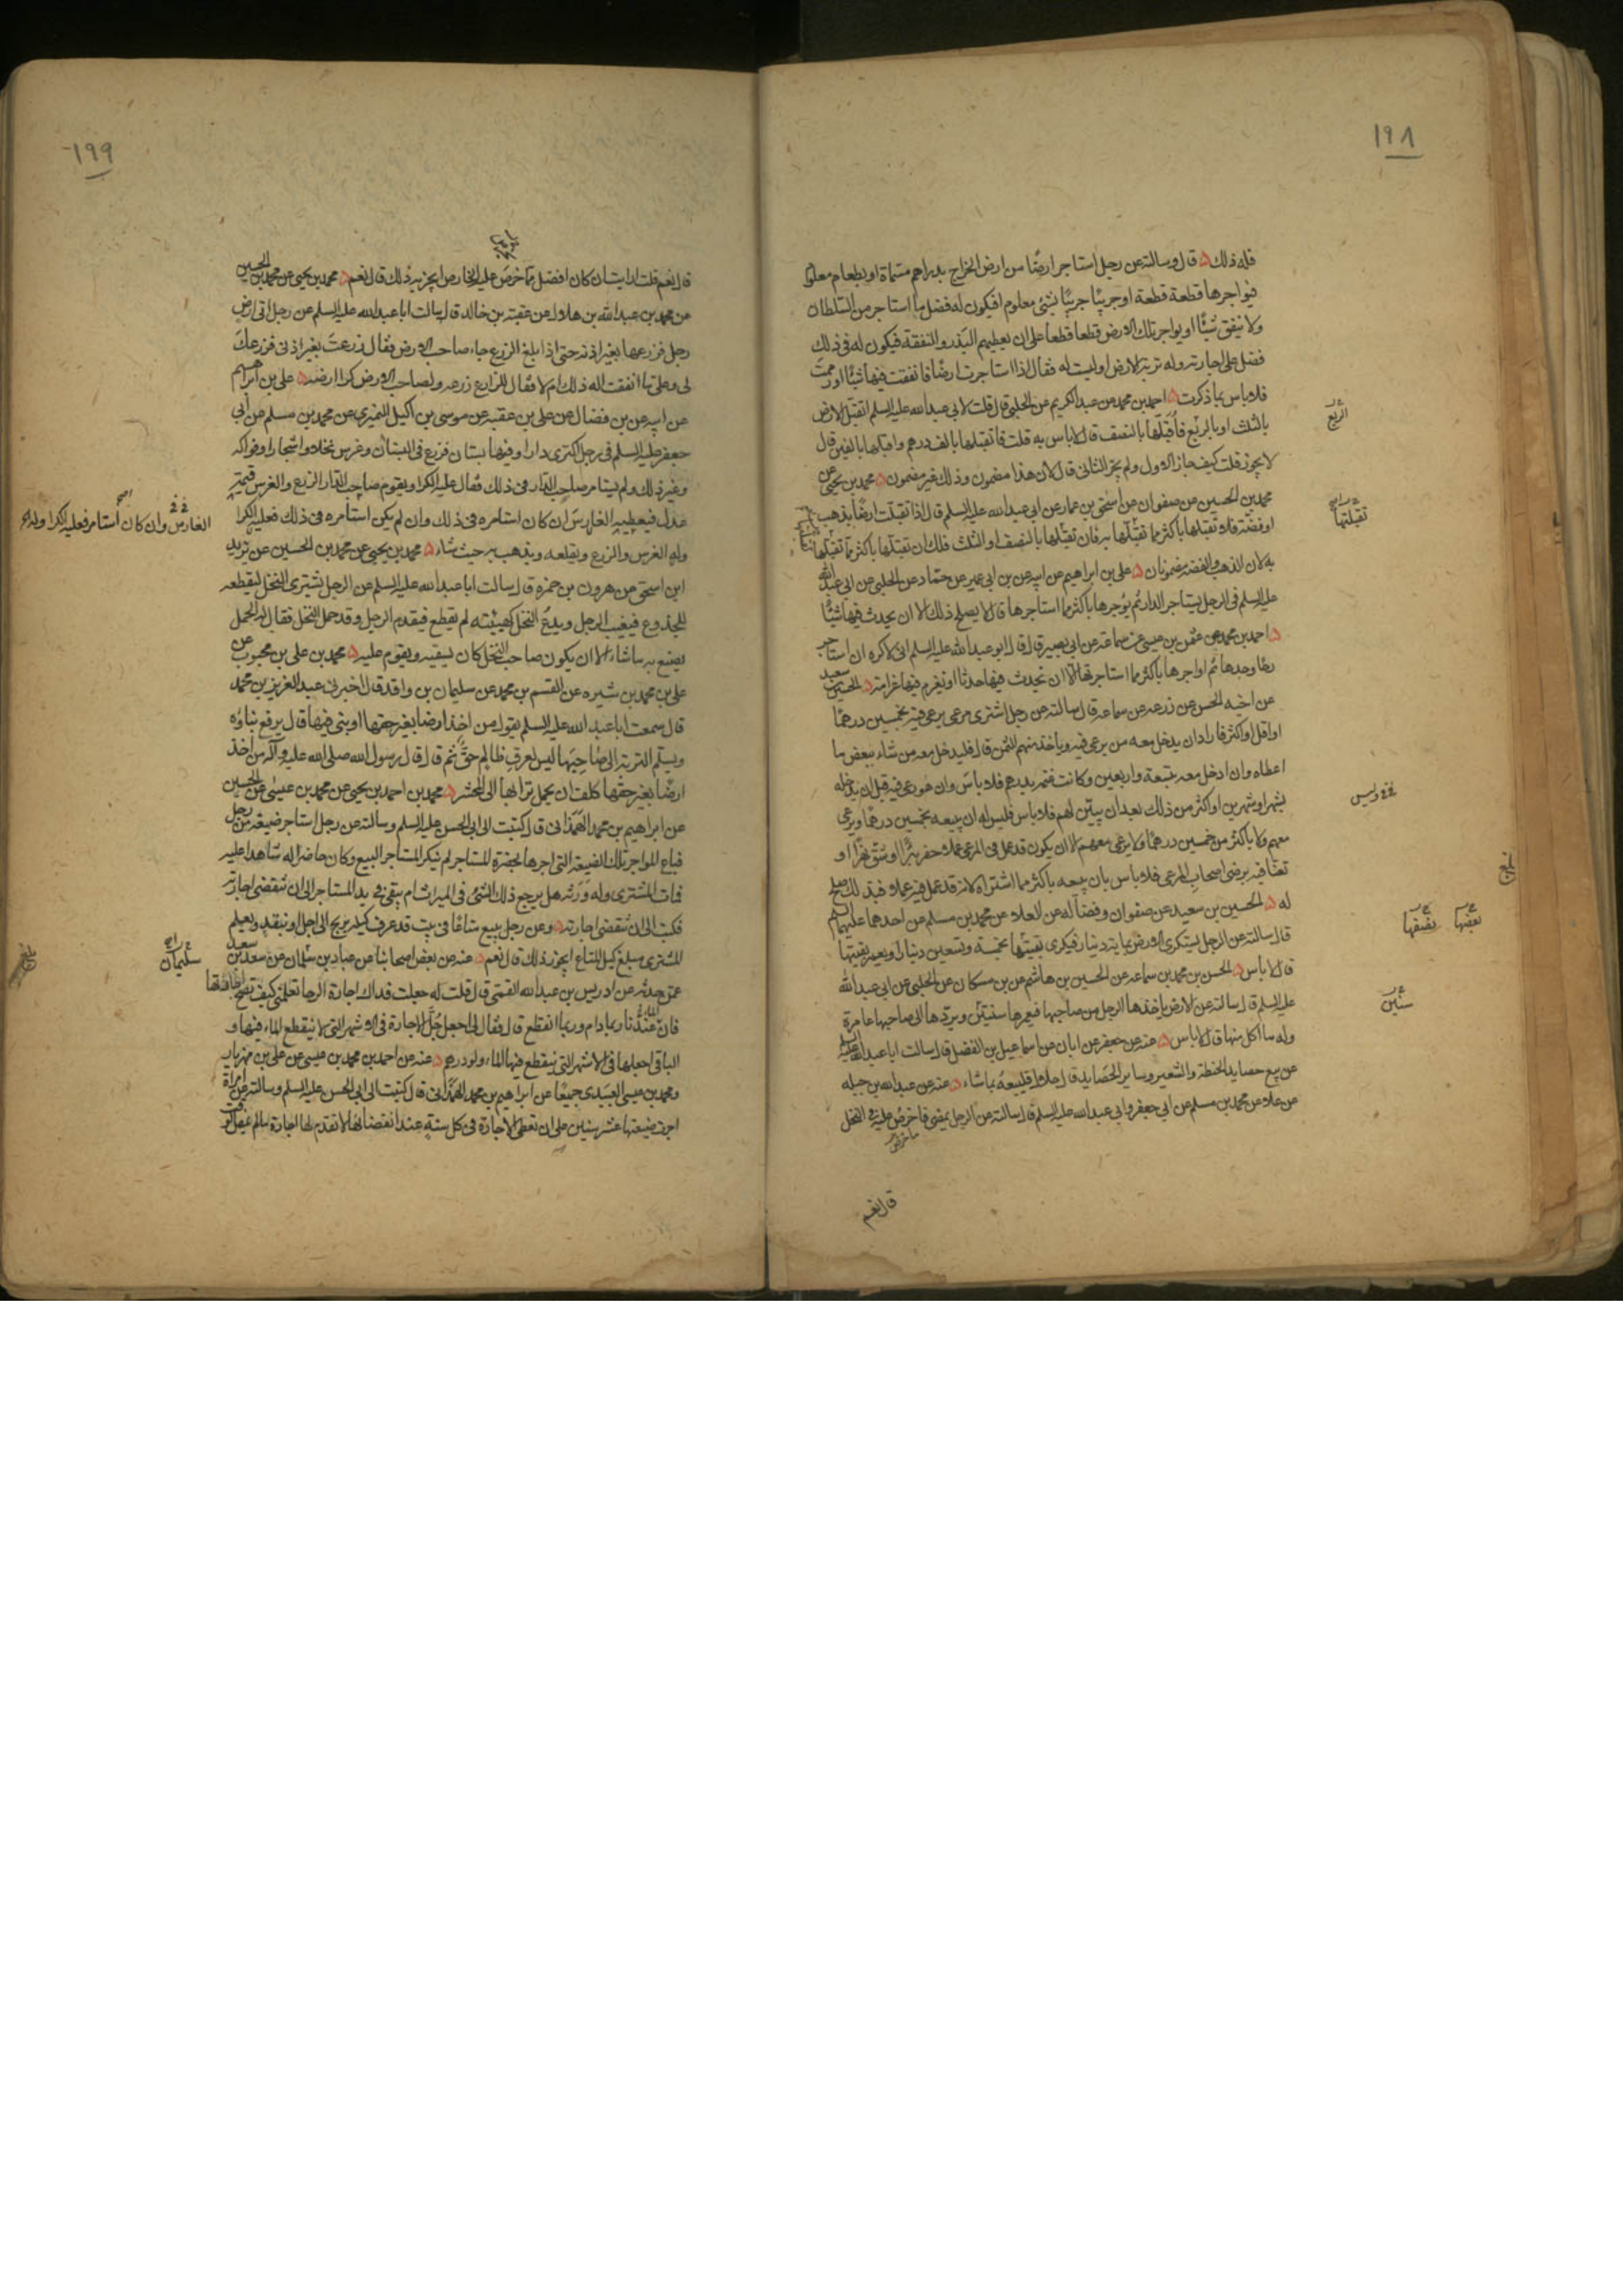 ١٩٨
فله ذلك ۵ قال وسالته عن رجل استاجر ارضًا من ارض الخراج بدراهم مسماة او بطعام معلوم
فيواجرها قطعة قطعة او جريبًا جريبًا بشئ معلوم افيكون له فضل ما استاجر من السلطان
ولا ينفق شيئًا او يواجر تلك الارض قطعا قطعا على ان يعطيهم البذر والنفقة فيكون له فى ذلك
فضل على اجارته وله تربة الارض او ليست له فقال اذا استاجرت ارضًا فانفقت فيها شيئًا او رممت
فلا باس بما ذكرت ۵ احمد بن محمد عن عبد الكريم عن الحلبى قال قلت لابى عبد الله عليه السلم اتقبل الارض
بالثلث او بالربع فاقبلها بالنصف قال لا باس به قلت فاتقبلها بالف درهم واقبلها بالفين قال
لا يجوز قلت كيف جاز الاول ولم يجز الثانى قال لان هذا مضمون وذلك غير مضمون ۵ محمد بن يحيى عن
محمد بن الحسين عن صفوان عن اسحق بن عمار عن ابى عبد الله عليه السلم قال اذا تقبلت ارضًا بذهب
او فضة فلا تقبلها باكثر مما تقبلتها به فان تقبلتها بالنصف او الثلث فلك ان تقبلها باكثر مما تقبلتها
به لان الذهب والفضه مضمونان ۵ على بن ابراهيم عن ابيه عن بن ابى عمير عن حماد عن الحلبى عن ابى عبد الله
عليه السلم فى الرجل يستاجر الدار ثم يؤجرها باكثر مما استاجرها قال لا يصلح ذلك الا ان يحدث فيها شيئًا
۵ احمد بن محمد عن عثمن بن عيسى عن سماعة عن ابى بصير قال قال ابو عبد الله عليه السلم انى لاكره ان استاجر
رحًا وحدها ثم اواجرها باكثر مما استاجرتها الا ان تحدث فيها حدثا او تغرم فيها غرامة ۵ الحسين بن سعيد
عن اخيه الحسن عن زرعه عن سماعه قال سالته عن رجل اشترى مرعى يرعى فيه بخمسين درهمًا
او اقل او اكثر فاراد ان يدخل معه من يرعى فيه وياخذ منهم الثمن قال فليدخل معه من شاء ببعض ما
اعطاه وان ادخل معه بتسعة واربعين وكانت غنمه بدرهم فلا باس وان هو رعى فيه قبل ان يدخله
بشهر او شهرين او اكثر من ذلك بعد ان يبين لهم فلا باس فليس له ان يبيعه بخمسين درهمًا ويرعى
معهم ولا باكثر من خمسين درهمًا ولا يرعى معهم الا ان يكون قد عمل فى المرعى عملا حفر بئرًا او شق نهرًا او
تعنّا فيه برضى اصحاب المرعى فلا باس بان يبيعه باكثر مما اشتراه لانه قد عمل فيه عملا فبذلك صلح
له ۵ الحسين بن سعيد عن صفوان وفضالة عن العلاء عن محمد بن مسلم عن احدهما عليهما السلم
قال سالته عن الرجل يستكرى الارض بماية دينار فيكرى بقيتها بخمسة وتسعين دينارا ويعمر بقيتها
قال لا باس ۵ الحسن بن محمد بن سماعه عن الحسين بن هاشم عن بن مسكان عن الحلبى عن ابى عبد الله
عليه السلم قال سالته عن الارض ياخذها الرجل من صاحبها فيعمرها سنتين ويردها الى صاحبها عامرة
وله ما اكل منها قال لا باس ۵ عنه عن جعفر عن ابان عن اسماعيل بن الفضل قال سالت ابا عبد الله عليه
عن بيع حصايد الحنطة والشعير وساير الحصايد قال حلال فليبعه بما شاء ۵ عنه عن عبد الله بن جبله
عن علا عن محمد بن مسلم عن ابى جعفر وابى عبد الله عليه السلم قال سالته عن الرجل يمضى ما خرص عليه فى النخل
قال نعم
الربع
تقبلتها
وليس
بعضها
نصفها
سنين
١٩٩
قال نعم قلت ارايت ان كان افضل مما خرص عليه الخارص ايجزيه ذلك قال نعم ۵ محمد بن يحيى عن محمد بن الحسين
عن محمد بن عبد الله بن هلال عن عقبة بن خالد قال سالت ابا عبد الله عليه السلم عن رجل اتى ارض
رجل فزرعها بغير اذنه حتى اذا بلغ الزرع جاء صاحب الارض فقال زرعت بغير اذنى فزرعك
لى وعلى ما انفقت اله ذلك ام لا فقال للزارع زرعه ولصاحب الارض كرا ارضه ۵ على بن ابراهيم
عن ابيه عن بن فضال عن على بن عقبه عن موسى بن اكيل النميرى عن محمد بن مسلم عن ابى
جعفر عليه السلم فى رجل اكترى دارا وفيها بستان فزرع فى البستان وغرس نخلا واشجارا وفواكه
وغير ذلك ولم يستامر صاحب الدار فى ذلك فقال عليه الكرا ويقوم صاحب الدار الزرع والغرس قيمة
عدل فيعطيه الغارس ان كان استامره فى ذلك وان لم يكن استامره فى ذلك فعليه الكرا
وله الغرس والزرع ويقلعه ويذهب به حيث شاء ۵ محمد بن يحيى عن محمد بن الحسين عن يزيد
ابن اسحق عن هرون بن حمزه قال سالت ابا عبد الله عليه السلم عن الرجل يشترى النخل ليقطعه
للجذوع فيغيب الرجل ويدع النخل كهيئته لم يقطع فيقدم الرجل وقد حمل النخل فقال له الحمل
يصنع به ما شاء الا ان يكون صاحب النخل كان يسقيه ويقوم عليه ۵ محمد بن على بن محبوب عن
على بن محمد بن شيره عن القسم بن محمد عن سليمان بن واقد قال اخبرنى عبد العزيز بن محمد
قال سمعت ابا عبد الله عليه السلم يقول من اخذ ارضا بغير حقها او بنى فيها قال يرفع بناؤه
ويسلم التربة الى صاحبها ليس لعرق ظالم حق ثم قال قال رسول الله صلى الله عليه وآله من اخذ
ارضًا بغير حقها كلف ان يحمل ترابها الى المحشر ۵ محمد بن احمد بن يحيى عن محمد بن عيسى عن الحسين
عن ابراهيم بن محمد الهمذانى قال كتبت الى ابى الحسن عليه السلم وسالته عن رجل استاجر ضيعة من رجل
فباع المواجر تلك الضيعة التى اجرها بحضرة المستاجر لم ينكر المستاجر البيع وكان حاضرًا له شاهدا عليه
فمات المشترى وله ورثة هل يرجع ذلك الشئ فى الميراث ام يبقى فى يد المستاجر الى ان تنقضى اجارته
فكتب الى ان تنقضى اجارته ۵ وعن رجل يبيع متاعًا فى بيت قد عرف كيله بربح الى اجل او بنقد ويعلم
المشترى مبلغ كيل المتاع ايجوز ذلك قال نعم ۵ عنه عن بعض اصحابنا عن عباد بن سليمان عن سعد بن سعيد
عمن حدثه عن ادريس بن عبد الله القمى قال قلت له جعلت فداك اجارة الرحا تعلمنى كيف تصح
فان الماء عندنا ربما دام وربما انقطع قال فقال لى اجعل جل الاجارة فى الاشهر التى لا ينقطع الماء فيها و
الباقى اجعلها فى الاشهر التى ينقطع فيها الماء ولو درهم ۵ عنه عن احمد بن محمد بن عيسى عن على بن مهزيار
ومحمد بن عيسى العبيدى جميعًا عن ابراهيم بن محمد الهمذانى قال كتبت الى ابى الحسن عليه السلم وسالته عن امراة
اجرت ضيعتها عشر سنين على ان تعطى الاجارة فى كل سنة عند انقضائها لا تقدم لها اجارة ما لم يمض الوقت
الغارس وان كان استامر فعليه الكرا وله
سليمان